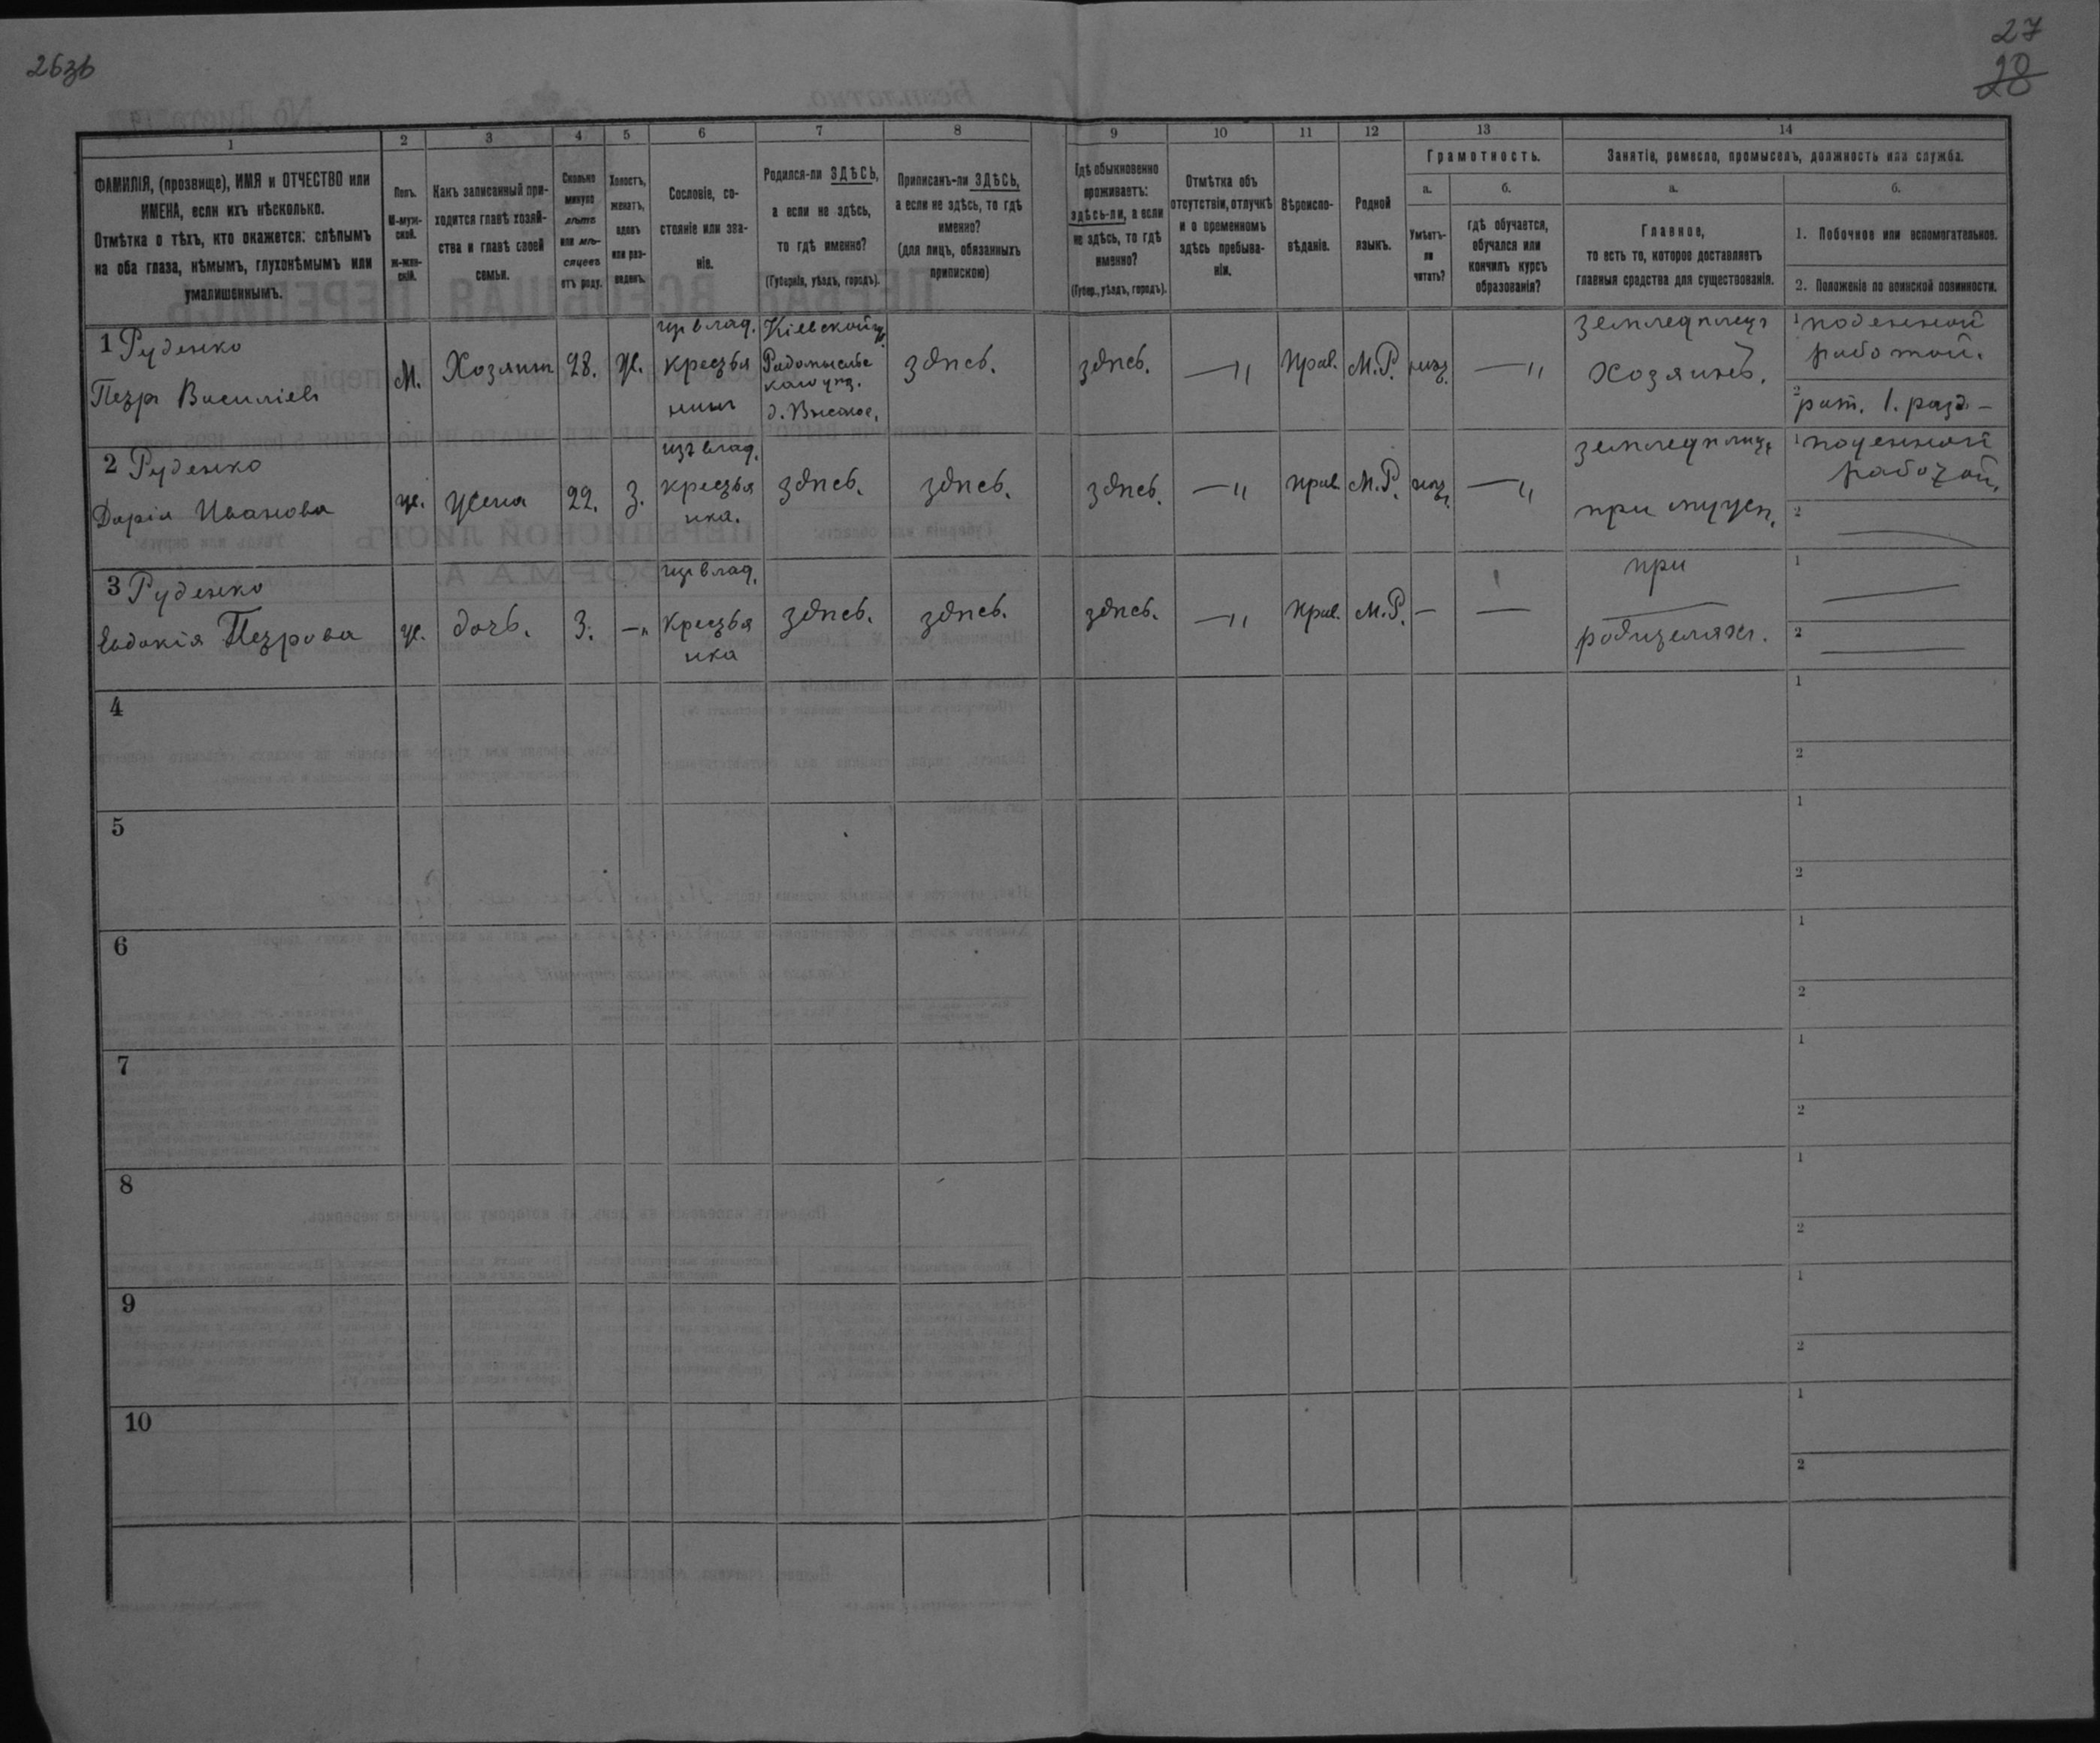 26зв
27
28
1
2
3
4
5
6
7
8
9
10
11
12
13
14
ФАМИЛІЯ, (прозвище), ИМЯ и ОТЧЕСТВО или
ИМЕНА, если ихъ нѣсколько.
Отмѣтка о тѣхъ, кто окажется: слѣпымъ
на оба глаза, нѣмымъ, глухонѣмымъ или
умалишеннымъ.
Полъ.
М-муж-
ской.
Ж-жен-
скій.
Какъ записанный при-
ходится главѣ хозяй-
ства и главѣ своей
семьи.
Сколько
минуло
лѣтъ
или мѣ-
сяцевъ
отъ роду.
Холостъ,
женатъ,
вдовъ
или раз-
веденъ.
Сословіе, со-
стояніе или зва-
ніе.
Родился-ли ЗДѢСЬ,
а если не здѣсь,
то гдѣ именно?
(Губернія, уѣздъ, городъ).
Приписанъ-ли ЗДѢСЬ,
а если не здѣсь, то гдѣ
именно?
(для лицъ, обязанныхъ
припискою)
Гдѣ обыкновенно
проживаетъ:
здѣсь-ли, а если
не здѣсь, то гдѣ
именно?
(Губер., уѣздъ, городъ).
Отмѣтка объ
отсутствіи, отлучкѣ
и о временномъ
здѣсь пребыва-
ніи.
Вѣроиспо-
вѣданіе.
Родной
языкъ.
Грамотность.
а.
б.
Умѣетъ-
ли
читать?
гдѣ обучается,
обучался или
кончилъ курсъ
образованія?
Занятіе, ремесло, промыселъ, должность или служба.
а.
б.
Главное,
то есть то, которое доставляетъ
главныя средства для существованія.
1. Побочное или вспомогательное.
2. Положеніе по воинской повинности.
1 Руденко
Петръ Василіевъ
М.
Хозяинъ
28.
Ж.
изъ влад.
крестья
нинъ
Кіевской г.
Радомысльс
каго уѣз.
д. Высокое,
здѣсь.
здѣсь.
— "
Прав.
М.Р.
нѣт.
— "
земледѣлецъ
хозяинъ.
1 поденной
работой.
2 рат. 1. разр. —
2 Руденко
Дарія Иванова
ж.
жена
22.
З.
изъ влад.
крестья
нка.
здѣсь.
здѣсь.
здѣсь.
— "
Прав.
М.Р.
нѣт.
— "
земледѣлицъ
при мужѣ,
1 поденной
работой.
2 —
3 Руденко
Евдокія Петрова
ж.
дочь.
3.
— "
изъ влад.
крестья
нка
здѣсь.
здѣсь.
здѣсь.
— "
Прав.
М.Р.
—
—
при
родителяхъ.
1 —
2 —
4
1
2
5
1
2
6
1
2
7
1
2
8
1
2
9
1
2
10
1
2